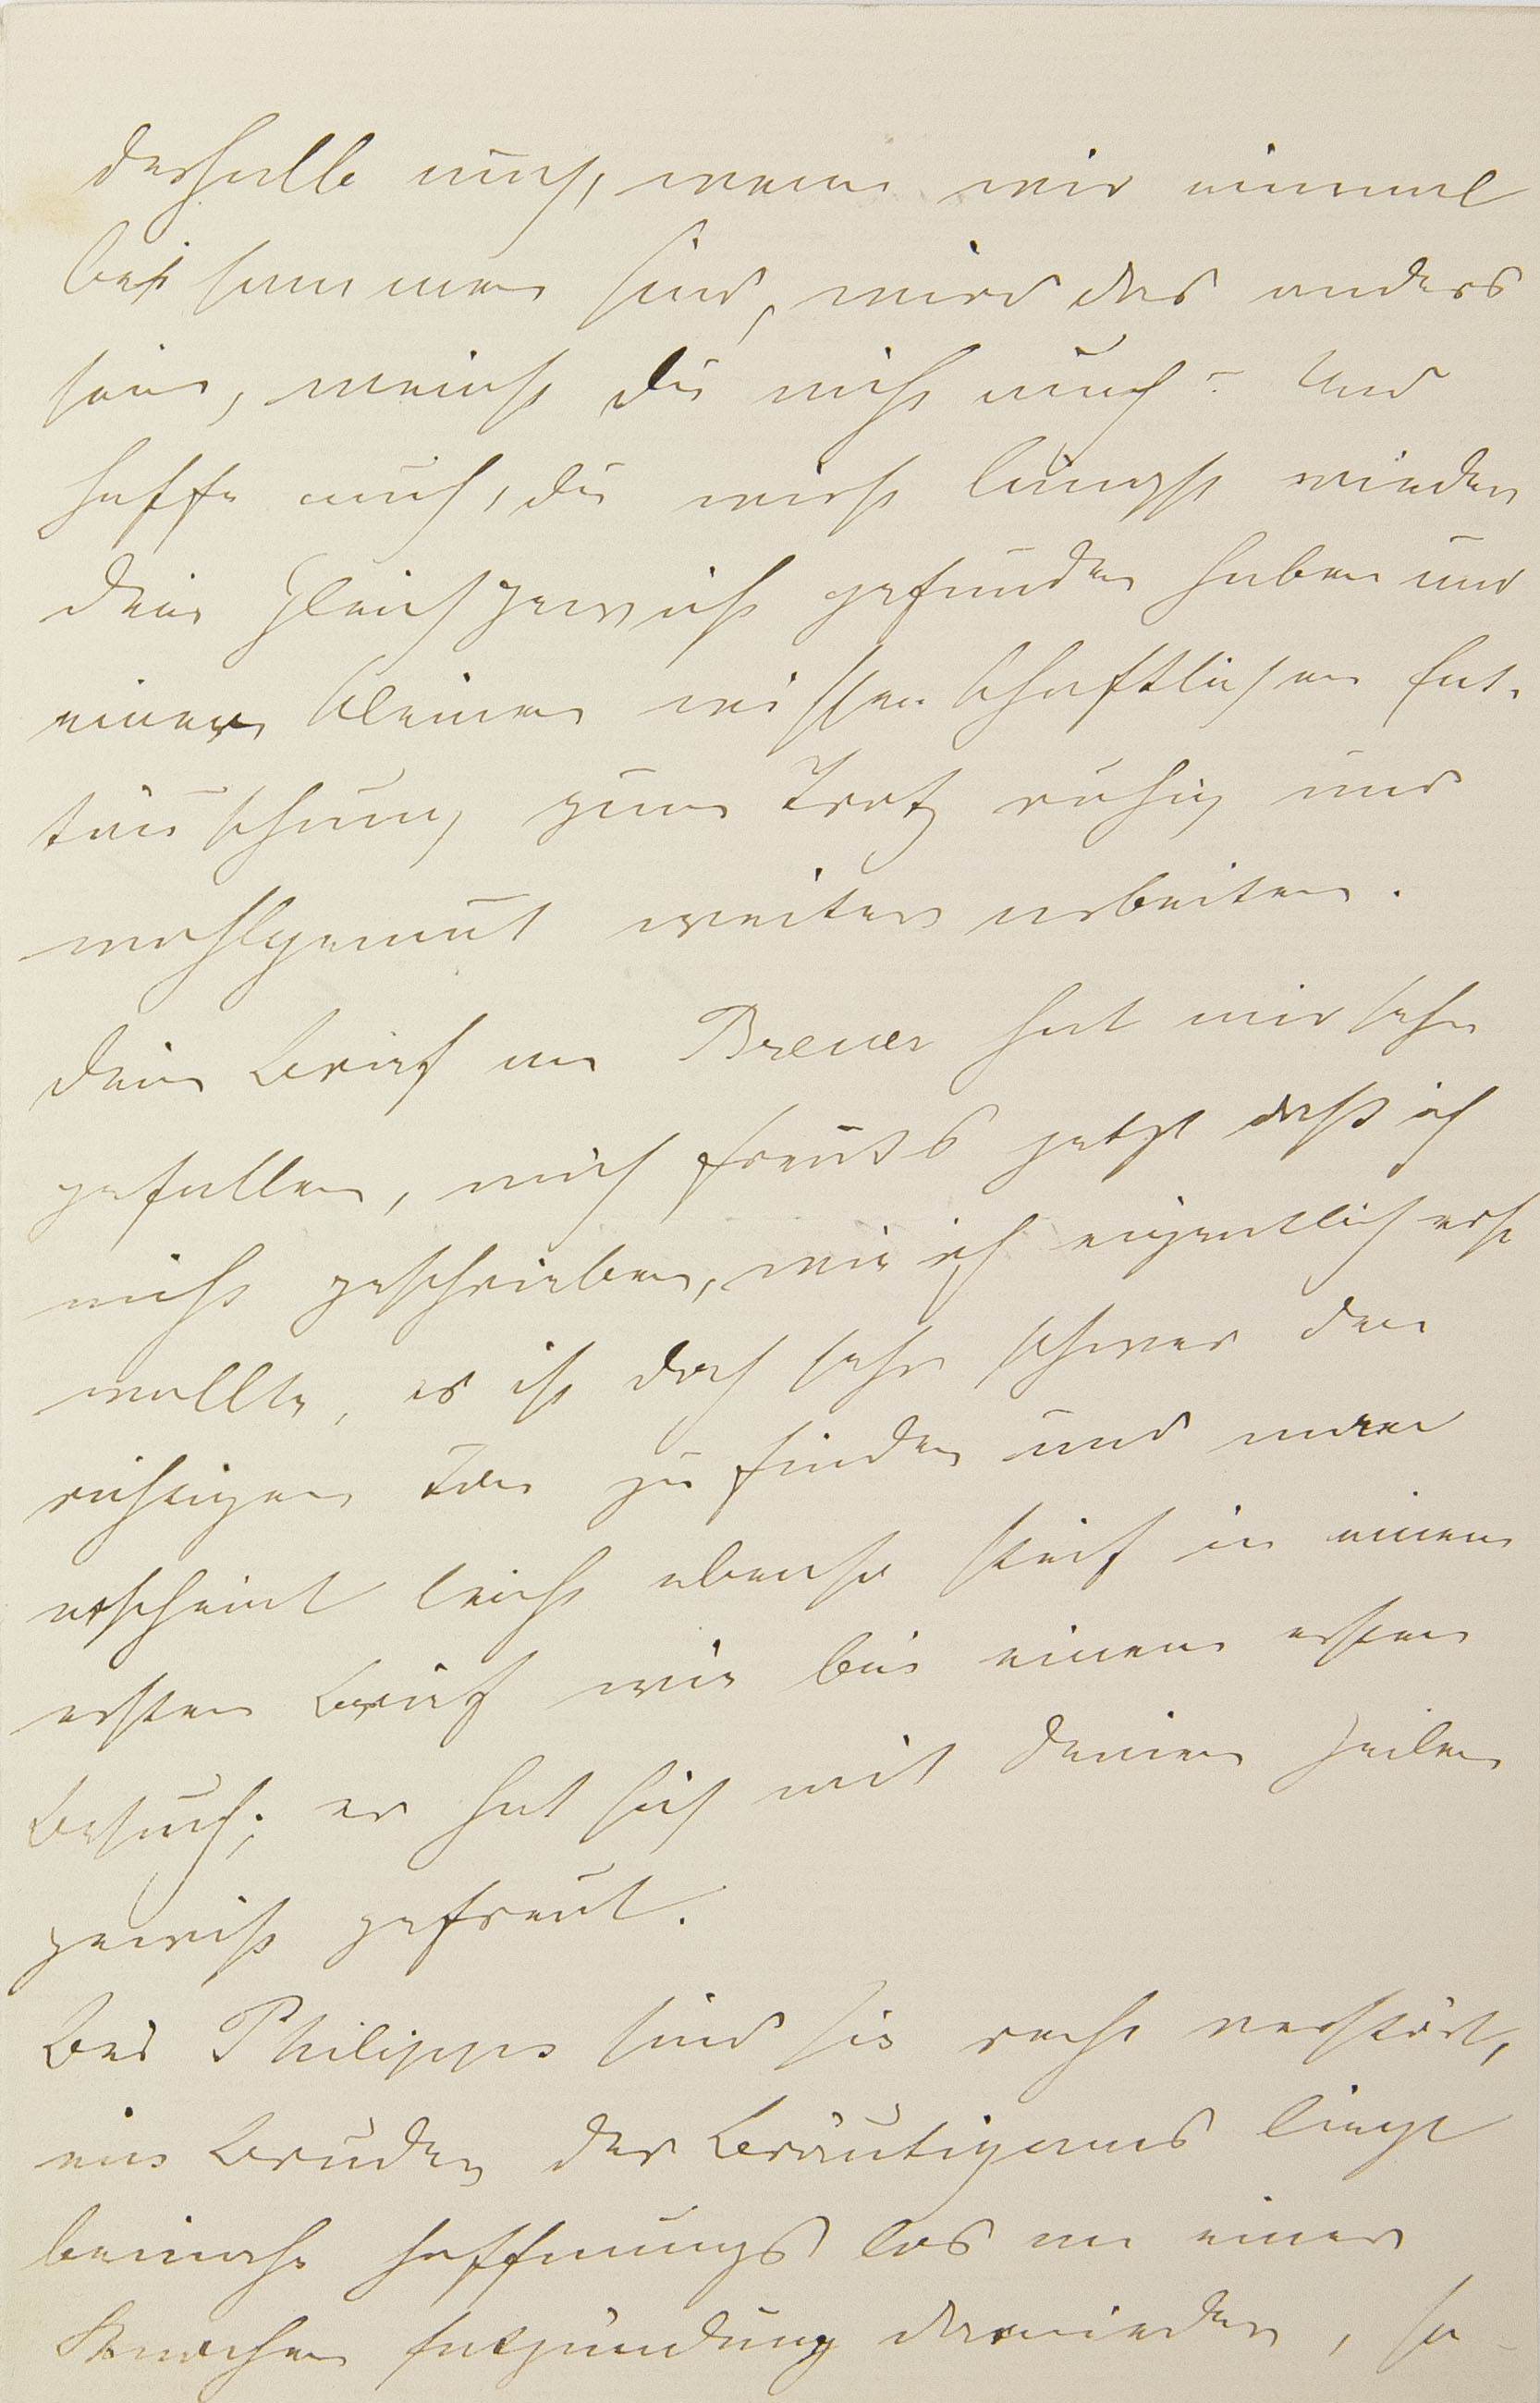 deshalb auch, wenn wir einmal
beisammen sind, wird das anders
sein, meinst Du nicht auch? Und
hoffe auch, Du wirst längst wieder
Dein Gleichgewicht gefunden haben und
einer kleinen wissenschaftlichen Ent-
täuschung zum Trotz ruhig und
wohlgemut weiter arbeiten.
Dein Brief an Breuer hat mir sehr
gefallen, mich freuts jetzt daß ich
nicht geschrieben, wie ich eigentlich erst
wollte, es ist doch sehr schwer den
richtigen Ton zu finden und man
erscheint leicht ebenso steif in einem
ersten Brief wie bei einem ersten
Besuch; er hat sich mit Deinen Zeilen
gewiß gefreut.
Bei Philipps sind sie recht verstört,
ein Bruder des Bräutigams liegt
beinahe hoffnungslos an einer
Knochen Entzündung darnieder, so-